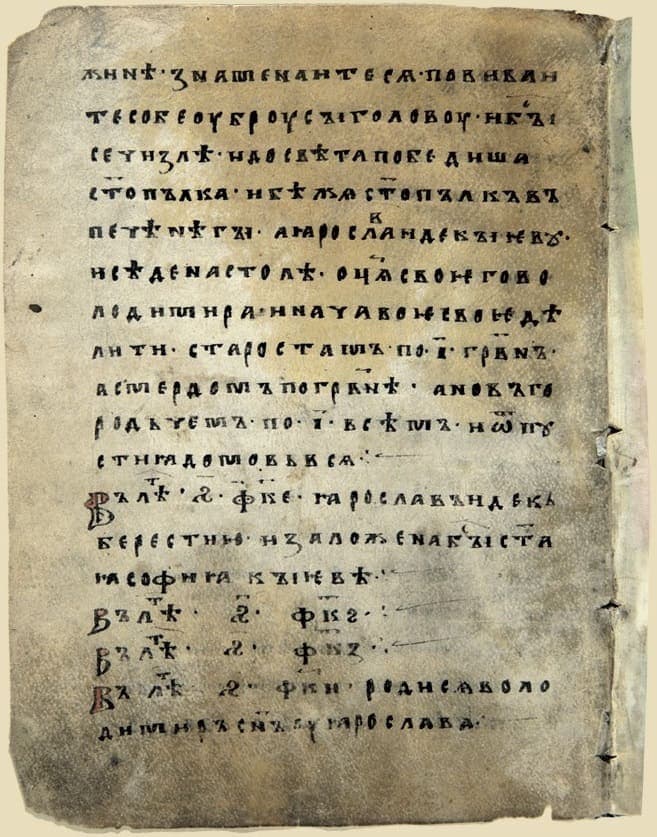 жинѣ·знаменаитесѧ·повиваи
тесобеоуброусꙑголовоу·ибꙑ
сецѧзлѣ·идосвѣтапобедиша
стопълка·ибѣжѧстопълкъвъ
пецѣнѣгꙑ·аꙗрославидекꙑѥву·
исѣденастолѣ·оц҃ѧсвоѥгово
лодимира·иначавоѥсвоѥдѣ
лити·старостамъ·по·і҃·грв҃нъ·
асмердомъпогрв҃нѣ·ановъго
родьчемъ·по·і҃·всѣмъ·иѿпу
стиꙗдомовьвсѧ·
Вълѣт·҂ѕ҃·ф҃ке·ꙗрославъидекъ
берестию·изаложенабꙑста
ꙗсофиꙗкꙑѥвѣ·
Вълѣт·҂ѕ҃·ф҃кѕ·
Вълѣт·҂ѕ҃·ф҃кз·
Вълѣт·҂ѕ҃·ф҃ки·родисѧволо
димиръсн҃ъуꙗрослава·